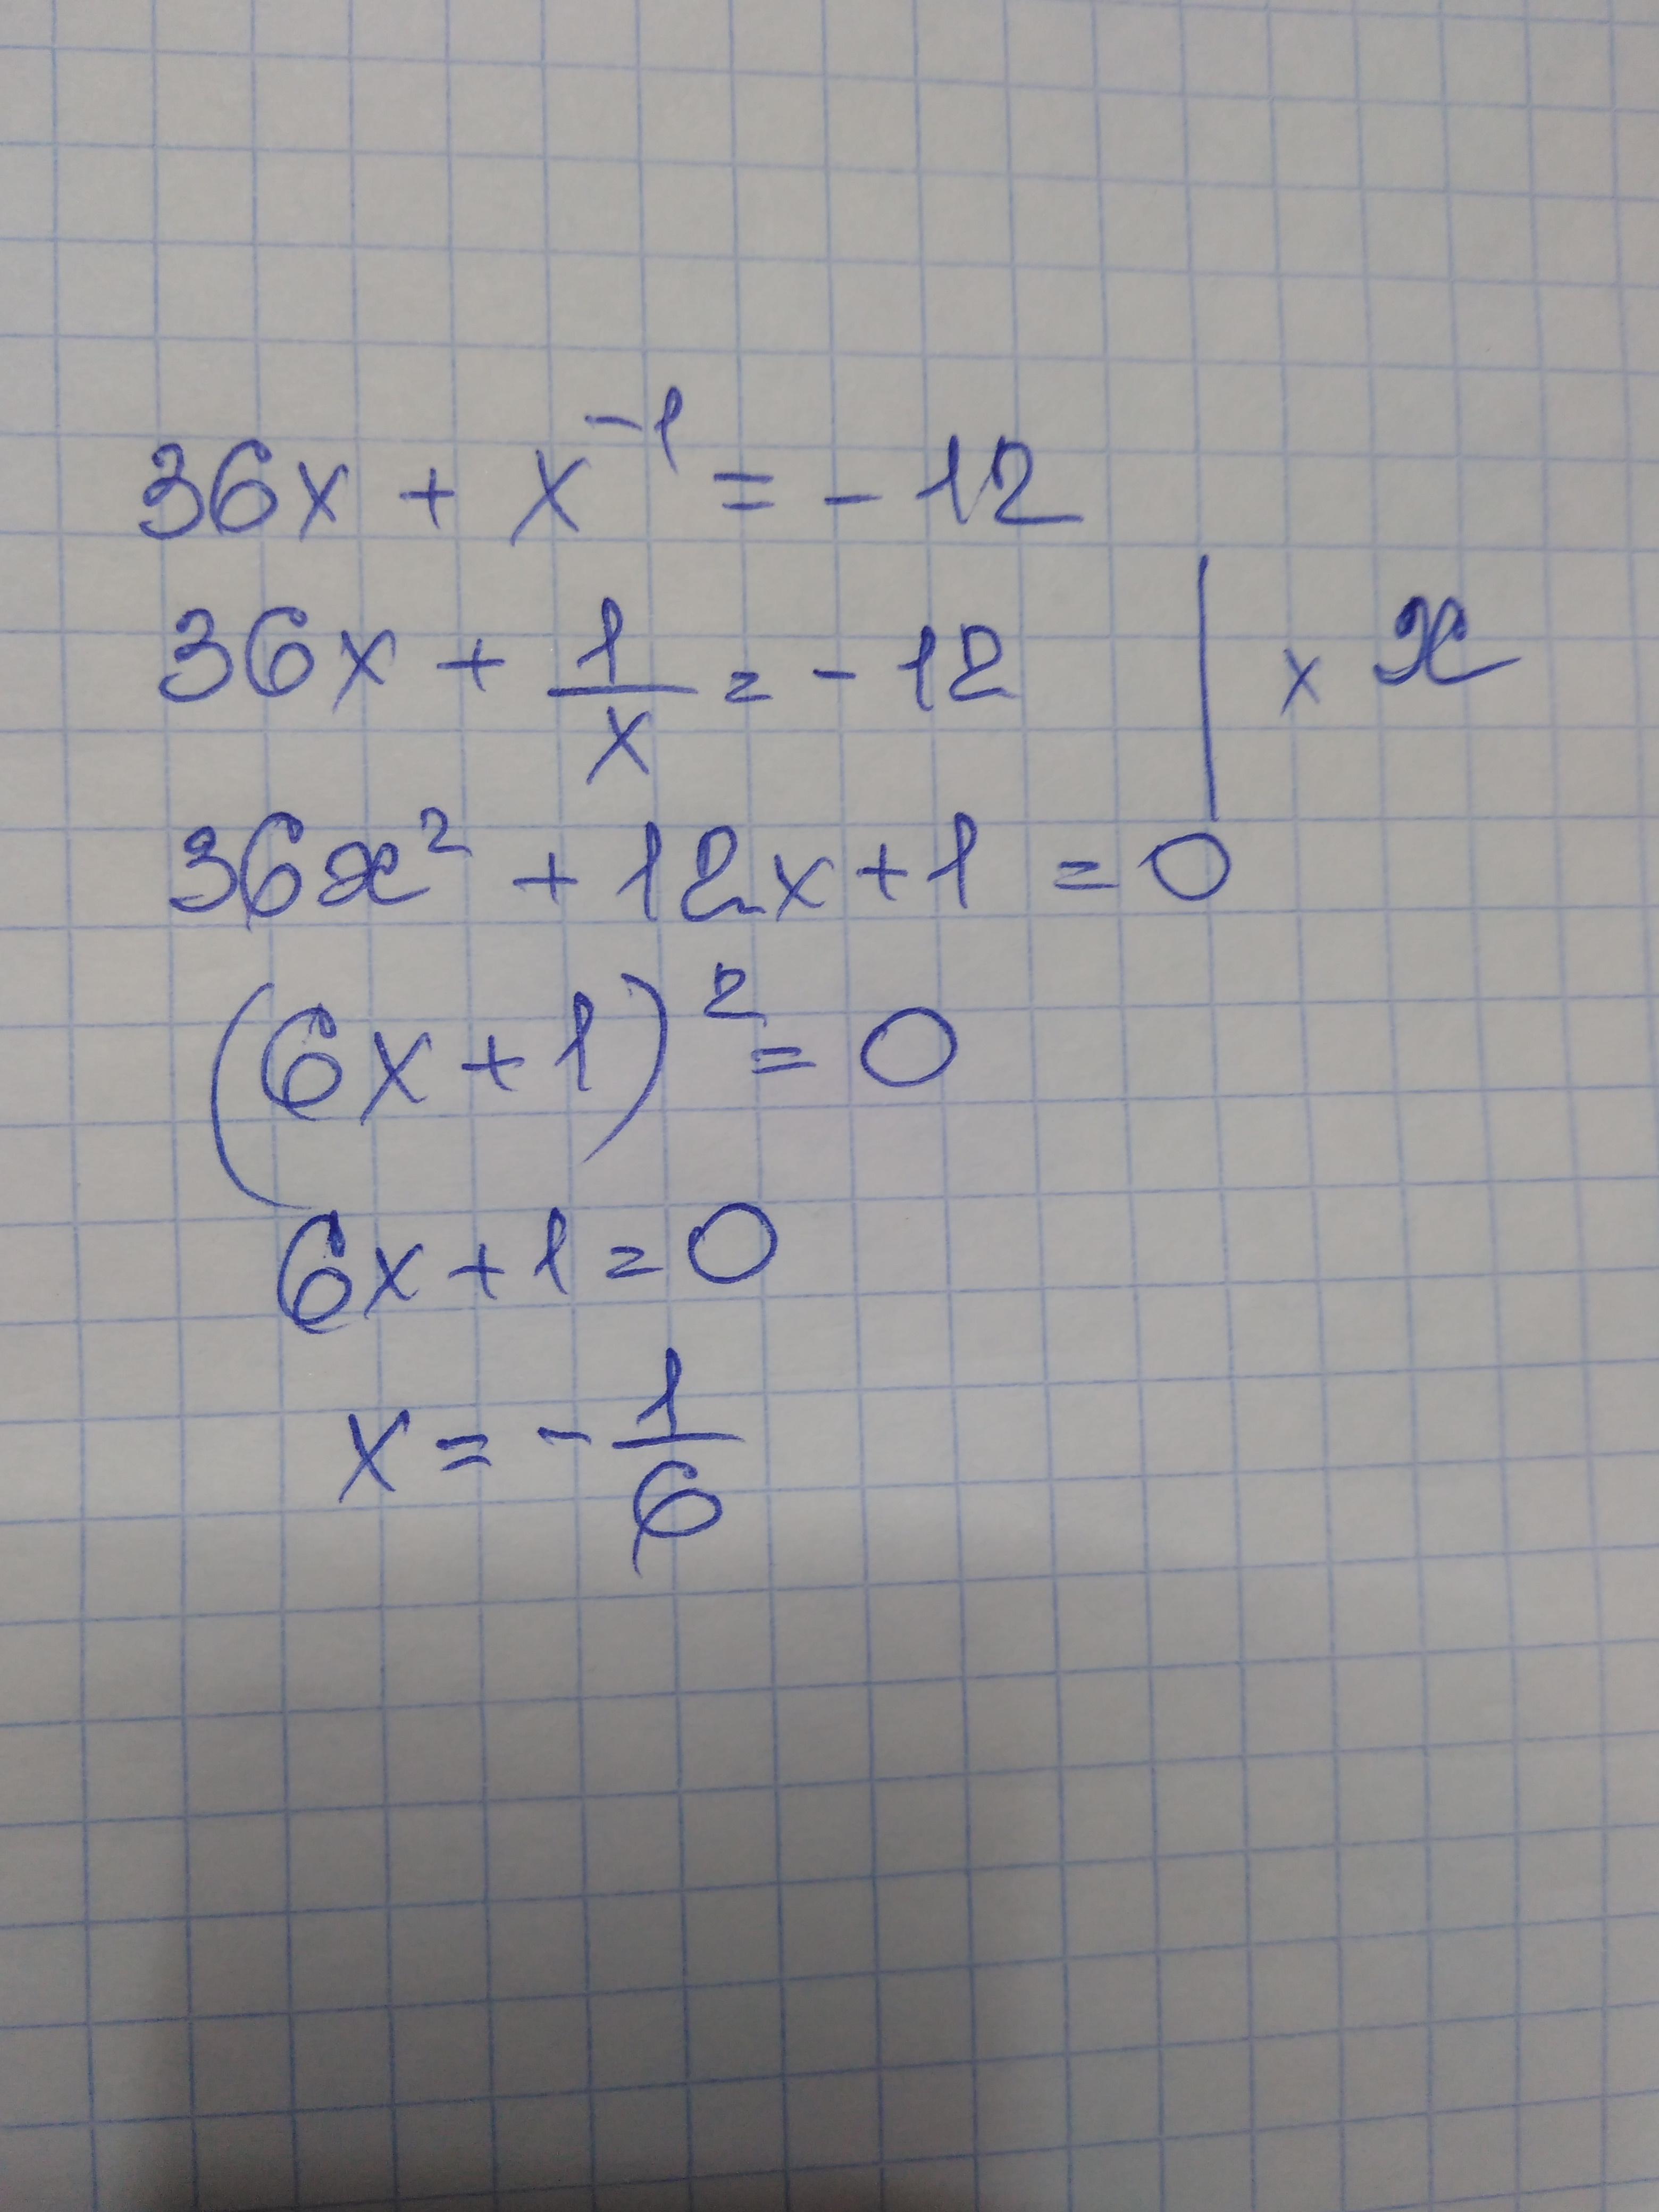 36x + x⁻¹ = - 12
36x + 1/x = - 12 | × x
36x² + 12x + 1 = 0
(6x + 1)² = 0
6x + 1 = 0
x = - 1/6